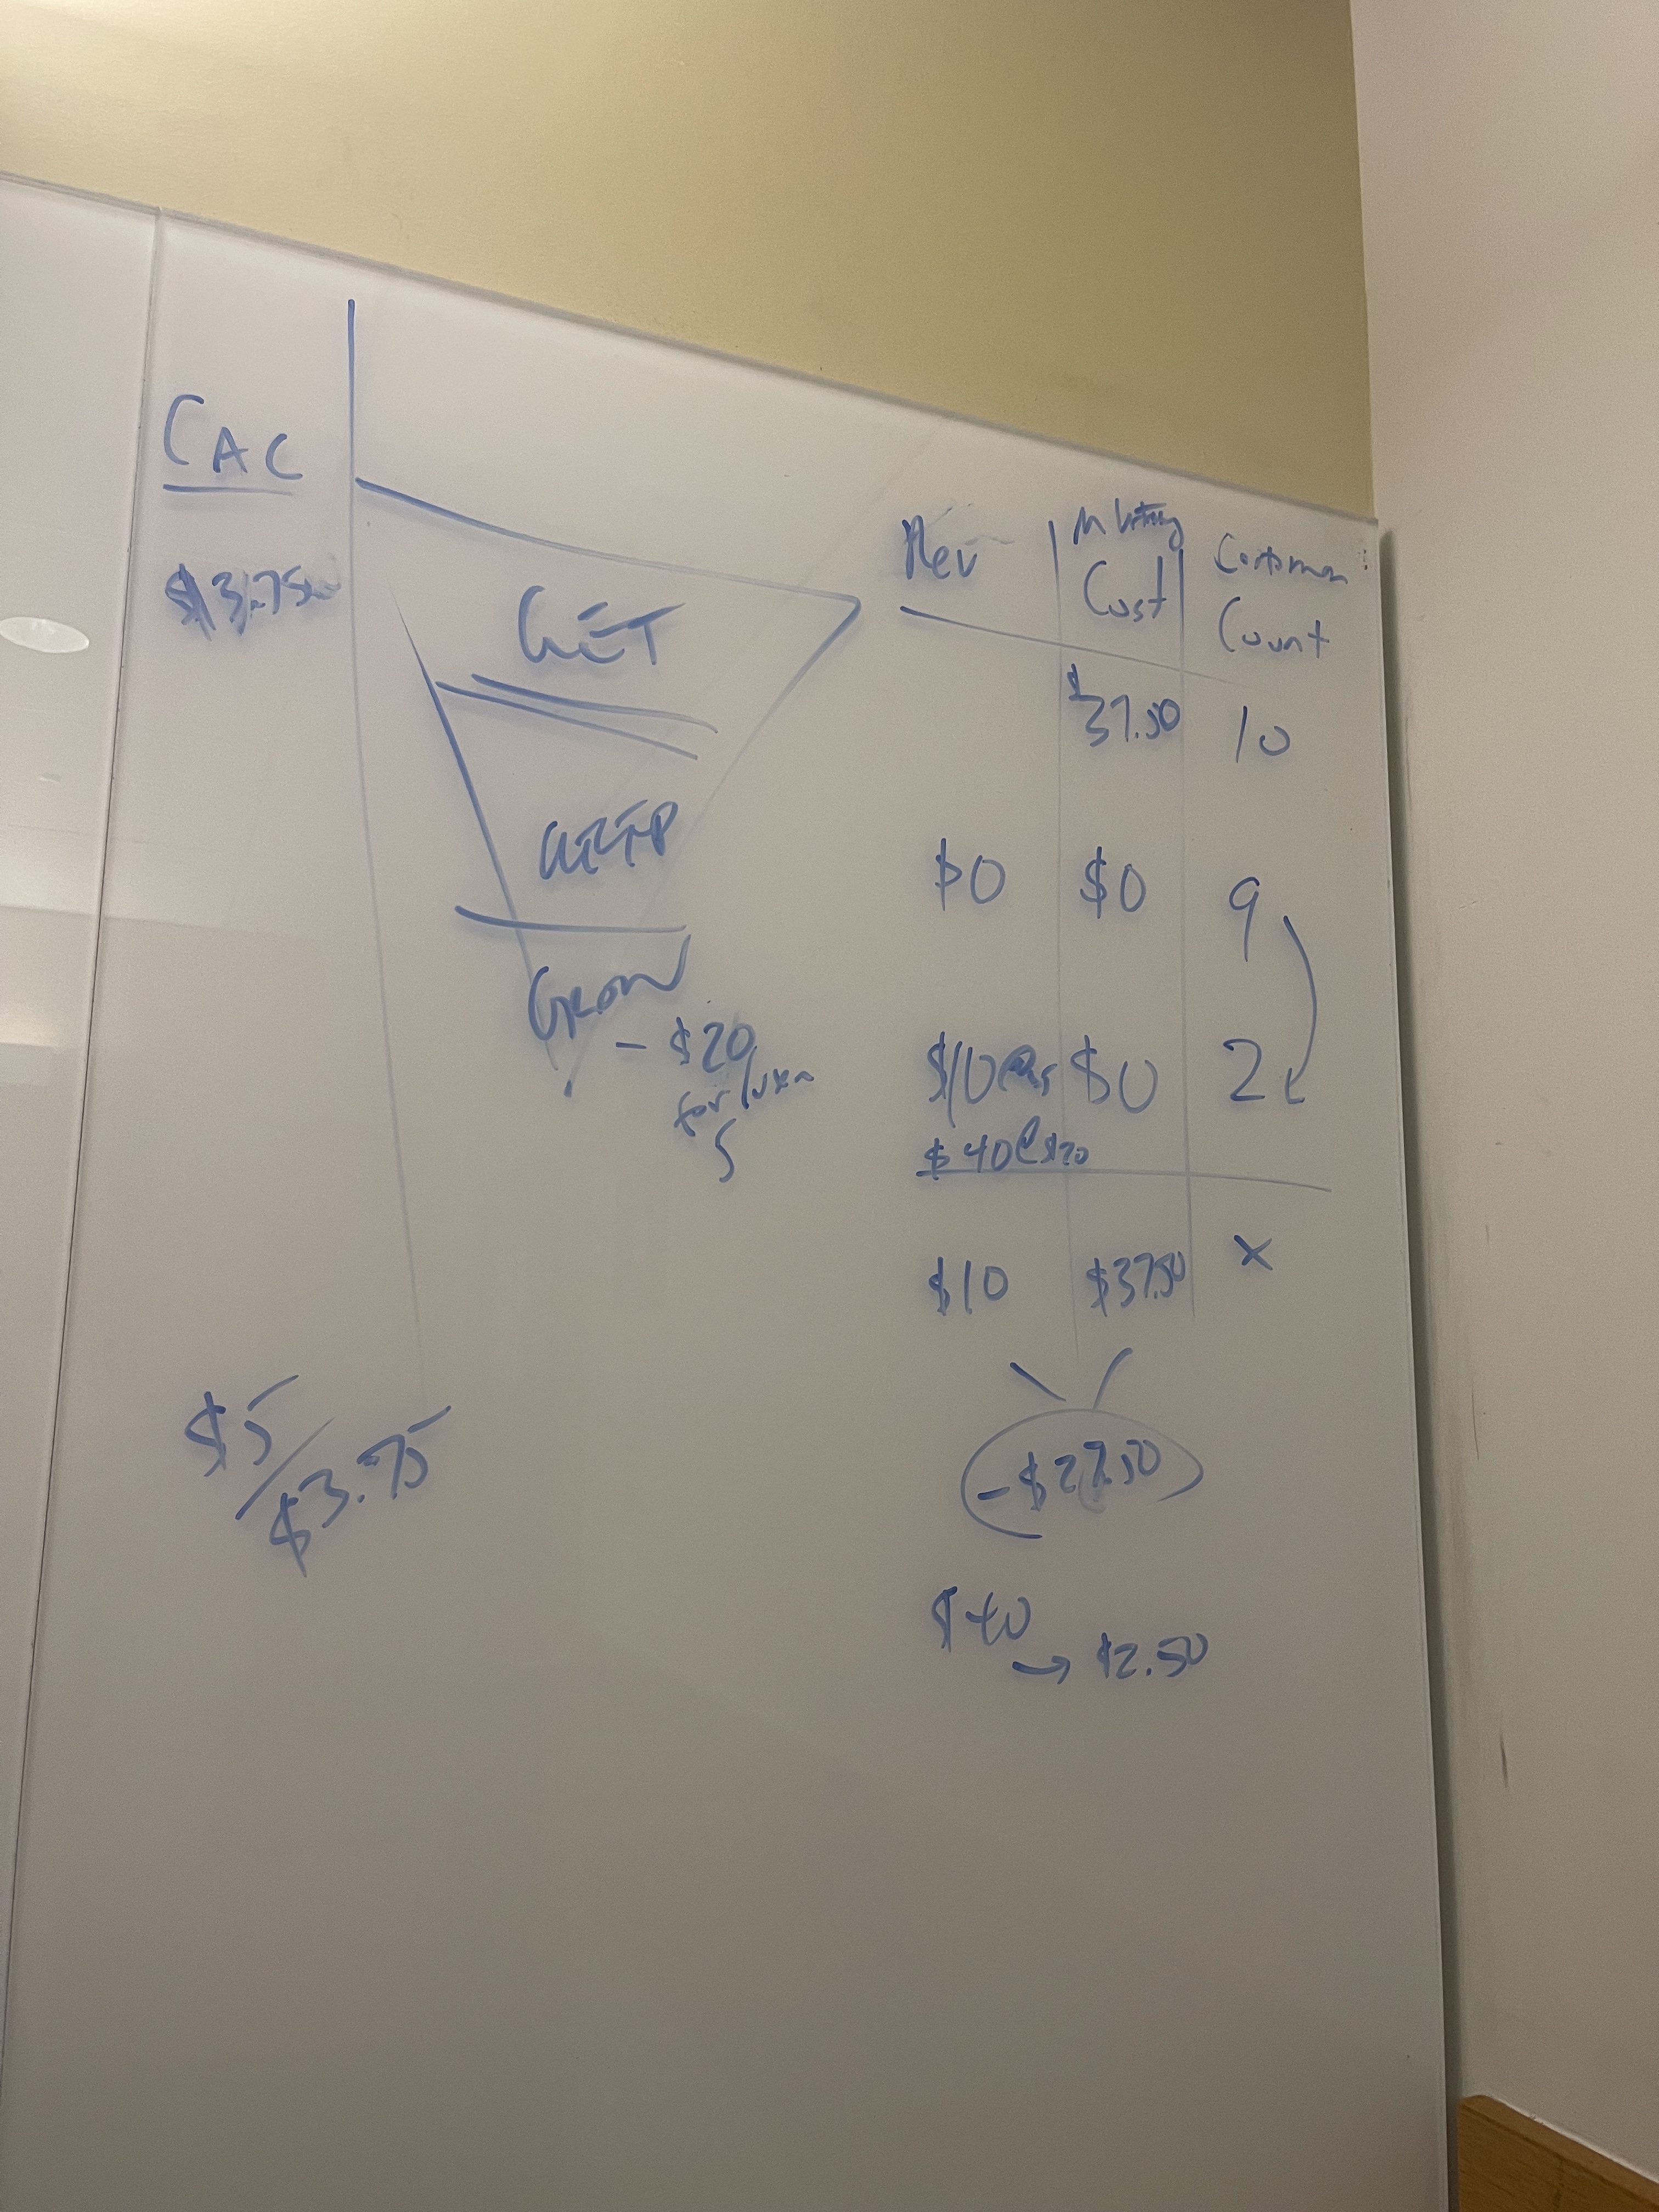 CAC
$3.75
GET
KEEP
Grow
- $20
for
5
Rev
Cost
Customer
Count
$37.50
10
$0
$0
9
$10
$0
2
$40@$20
$10
$37.50
x
-$27.50
$40
→ $2.50
$5/$3.75